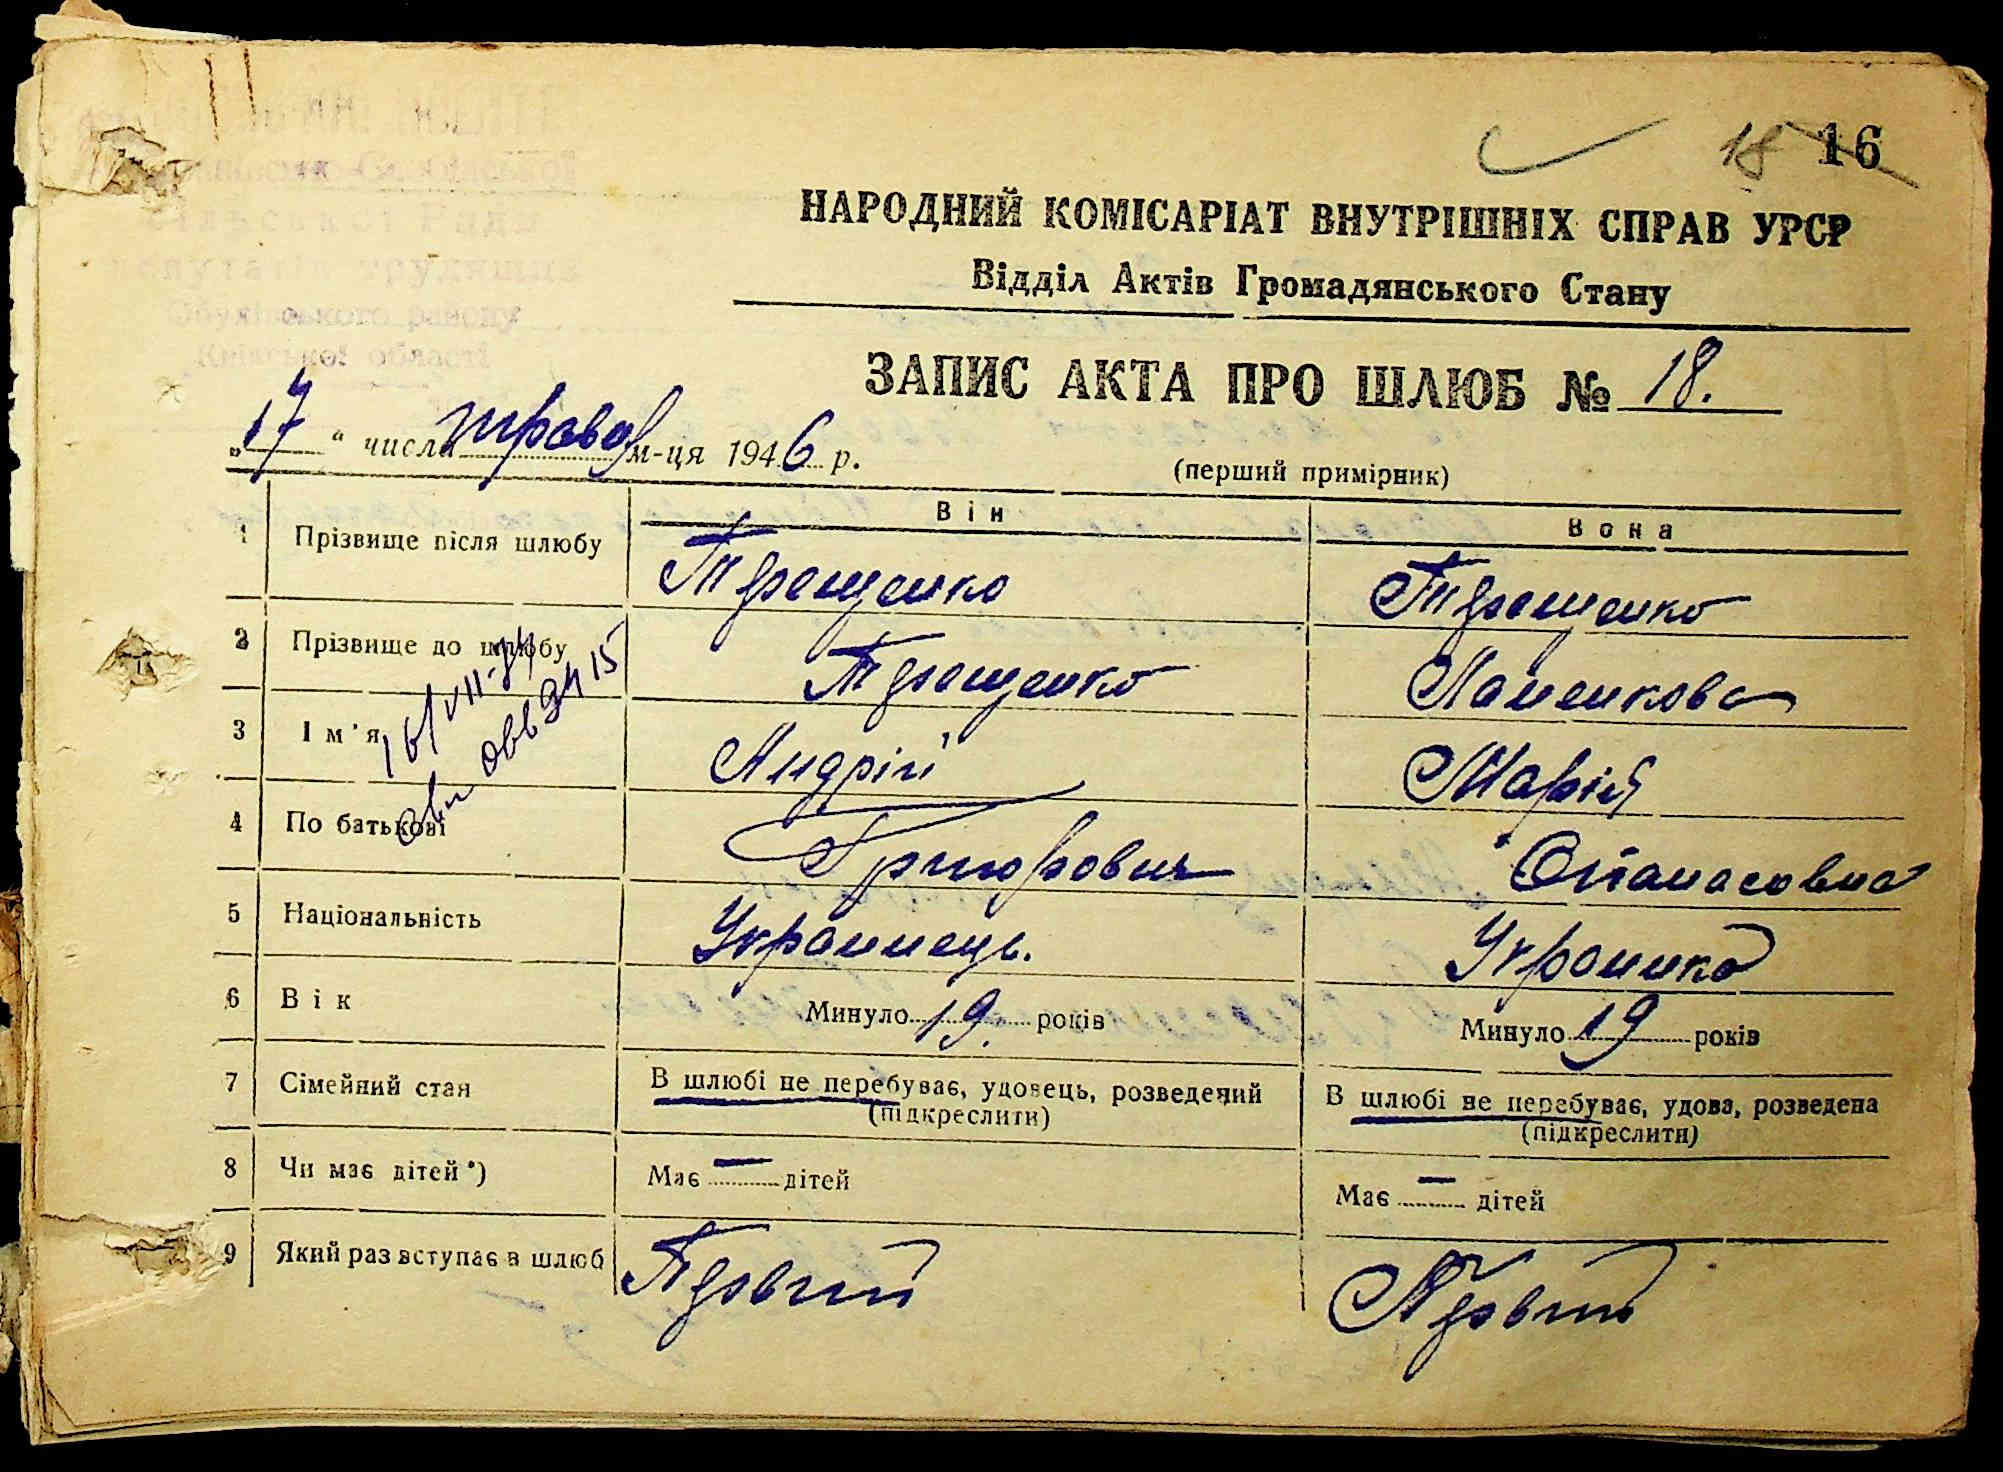 18 16
НАРОДНИЙ КОМІСАРІАТ ВНУТРІШНІХ СПРАВ УРСР
Відділ Актів Громадянського Стану
сільської Ради
депутатів трудящих
Обухівського району
Київської області
ЗАПИС АКТА ПРО ШЛЮБ № 18.
„17“ числа травня м-ця 1946 р.
(перший примірник)
Він Вона
1 Прізвище після шлюбу Терещенко Терещенко
2 Прізвище до шлюбу Терещенко Паненкова
16/VII-84
3 Ім'я Андрій Марія
4 По батькові Григорович Опанасовна
5 Національність Украинець. Украинка
6 Вік Минуло 19. років Минуло 19 років
7 Сімейний стан В шлюбі не перебуває, удовець, розведений В шлюбі не перебуває, удова, розведена
(підкреслити) (підкреслити)
8 Чи має дітей*) Має — дітей Має — дітей
9 Який раз вступає в шлюб Первий Первий